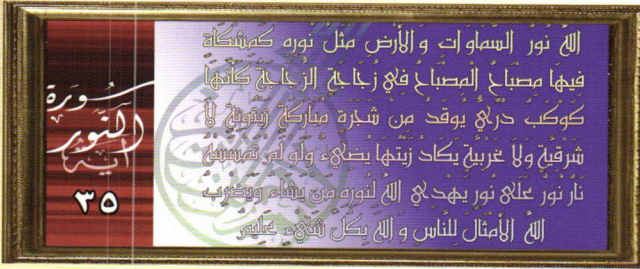 الله نور السماوات والأرض مثل نوره كمشكاة
فيها مصباح المصباح في زجاجة الزجاجة كأنها
كوكب دري يوقد من شجرة مباركة زيتونة لا
شرقية ولا غربية يكاد زيتها يضيء ولو لم تمسسه
نار نور على نور يهدي الله لنوره من يشاء ويضرب
الله الأمثال للناس والله بكل شيء عليم
سورة
النور
آية
٣٥